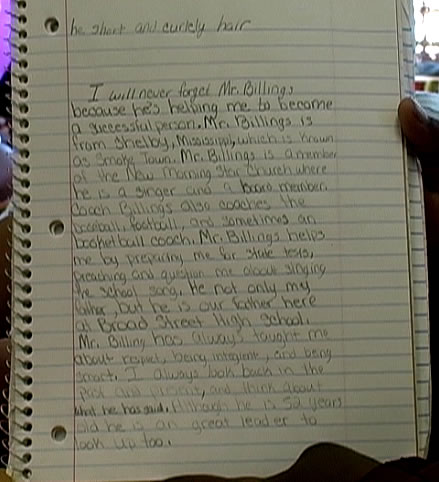 he short and curlely hair
I will never forget Mr. Billings
because he's helping me to become
a successful person. Mr. Billings is
from Shelby, Mississippi, which is known
as Smoke Town. Mr. Billings is a member
of the New Morning Star Church where
he is a singer and a board member.
Coach Billings also coaches the
baseball, football, and sometimes an
basketball coach. Mr. Billings helps
me by preparing me for state tests,
preaching and question me about singing
the school song. He not only my
father, but he is our father here
at Broad Street High School.
Mr. Billing has always taught me
about respect, being , and being
smart. I always look back in the
past and present, and think about
what he has said. Although he is 52 years
old he is an great leader to
look up too.